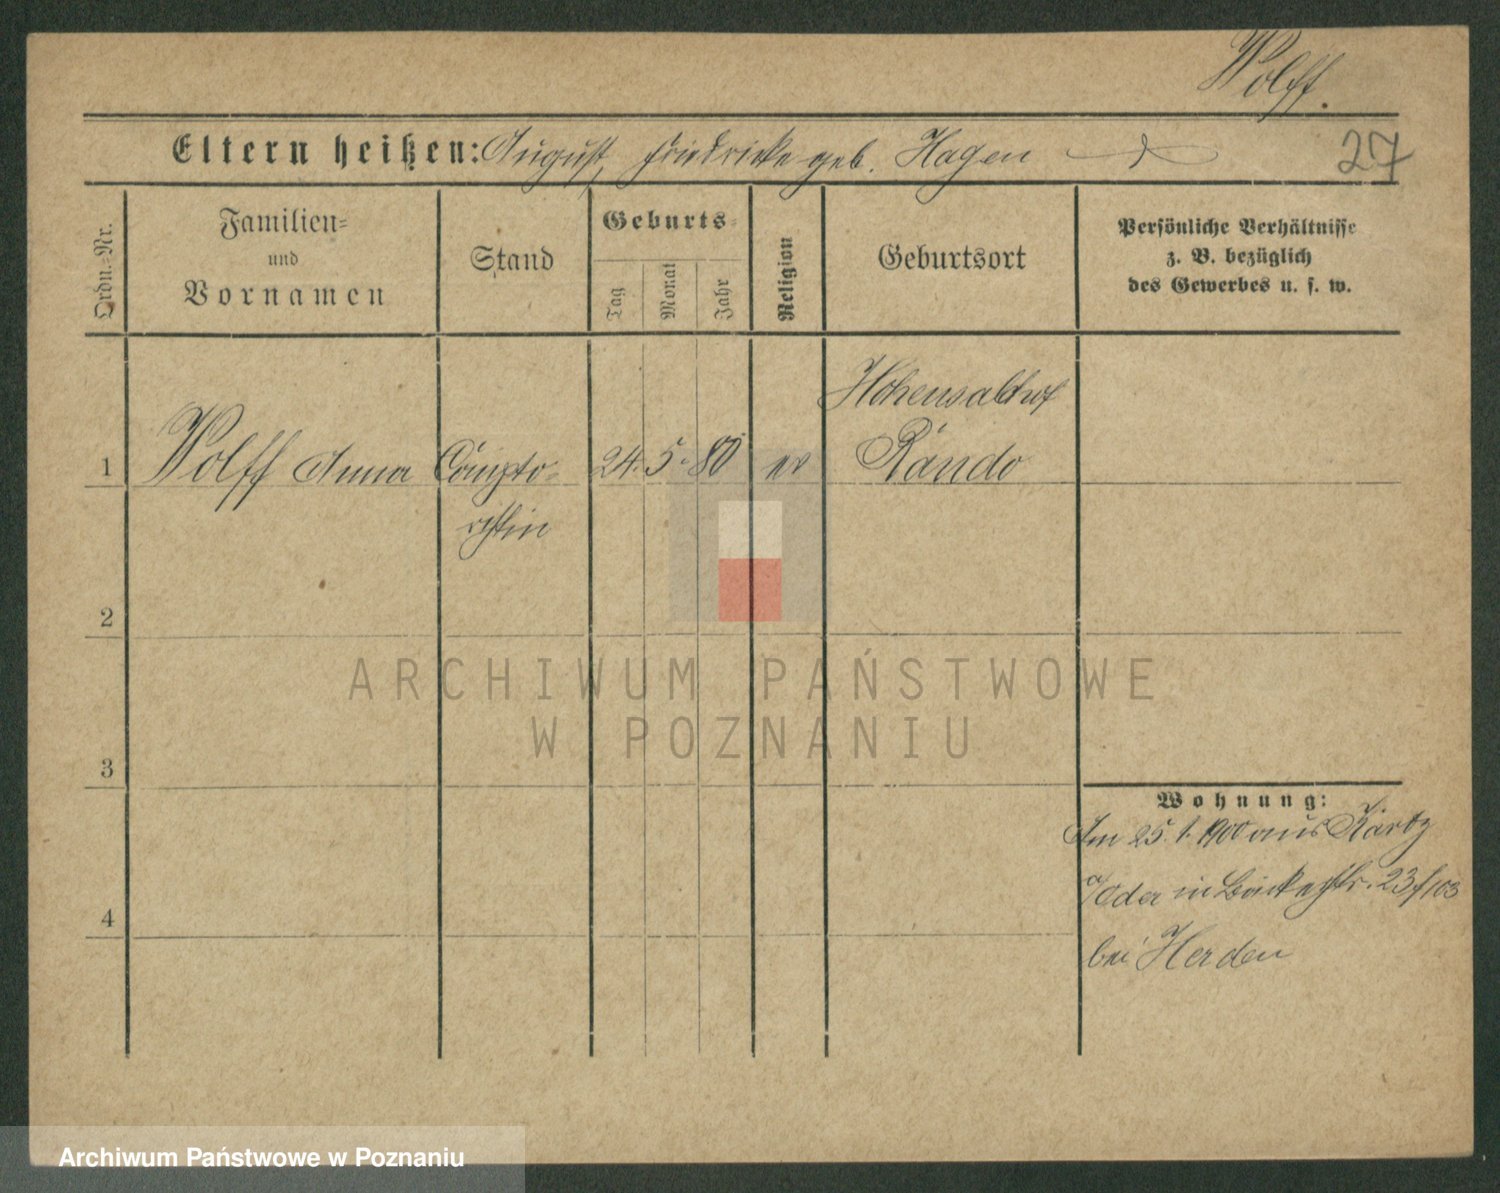 Wolff.
Eltern heißen: August, Friedricke geb. Hagen
27
Ordn.-Nr.
Familien-
und
Vornamen
Stand
Geburts-
Tag
Monat
Jahr
Religion
Geburtsort
Persönliche Verhältnisse
z. B. bezüglich
des Gewerbes u. s. w.
1
Wolff Anna
Compto-
ristin
24. 5. 80
ev
2
3
4
Wohnung:
Am 25. 1. 1900 aus
a/Oder in 23
bei Herden
ARCHIWUM PAŃSTWOWE
W POZNANIU
Archiwum Państwowe w Poznaniu